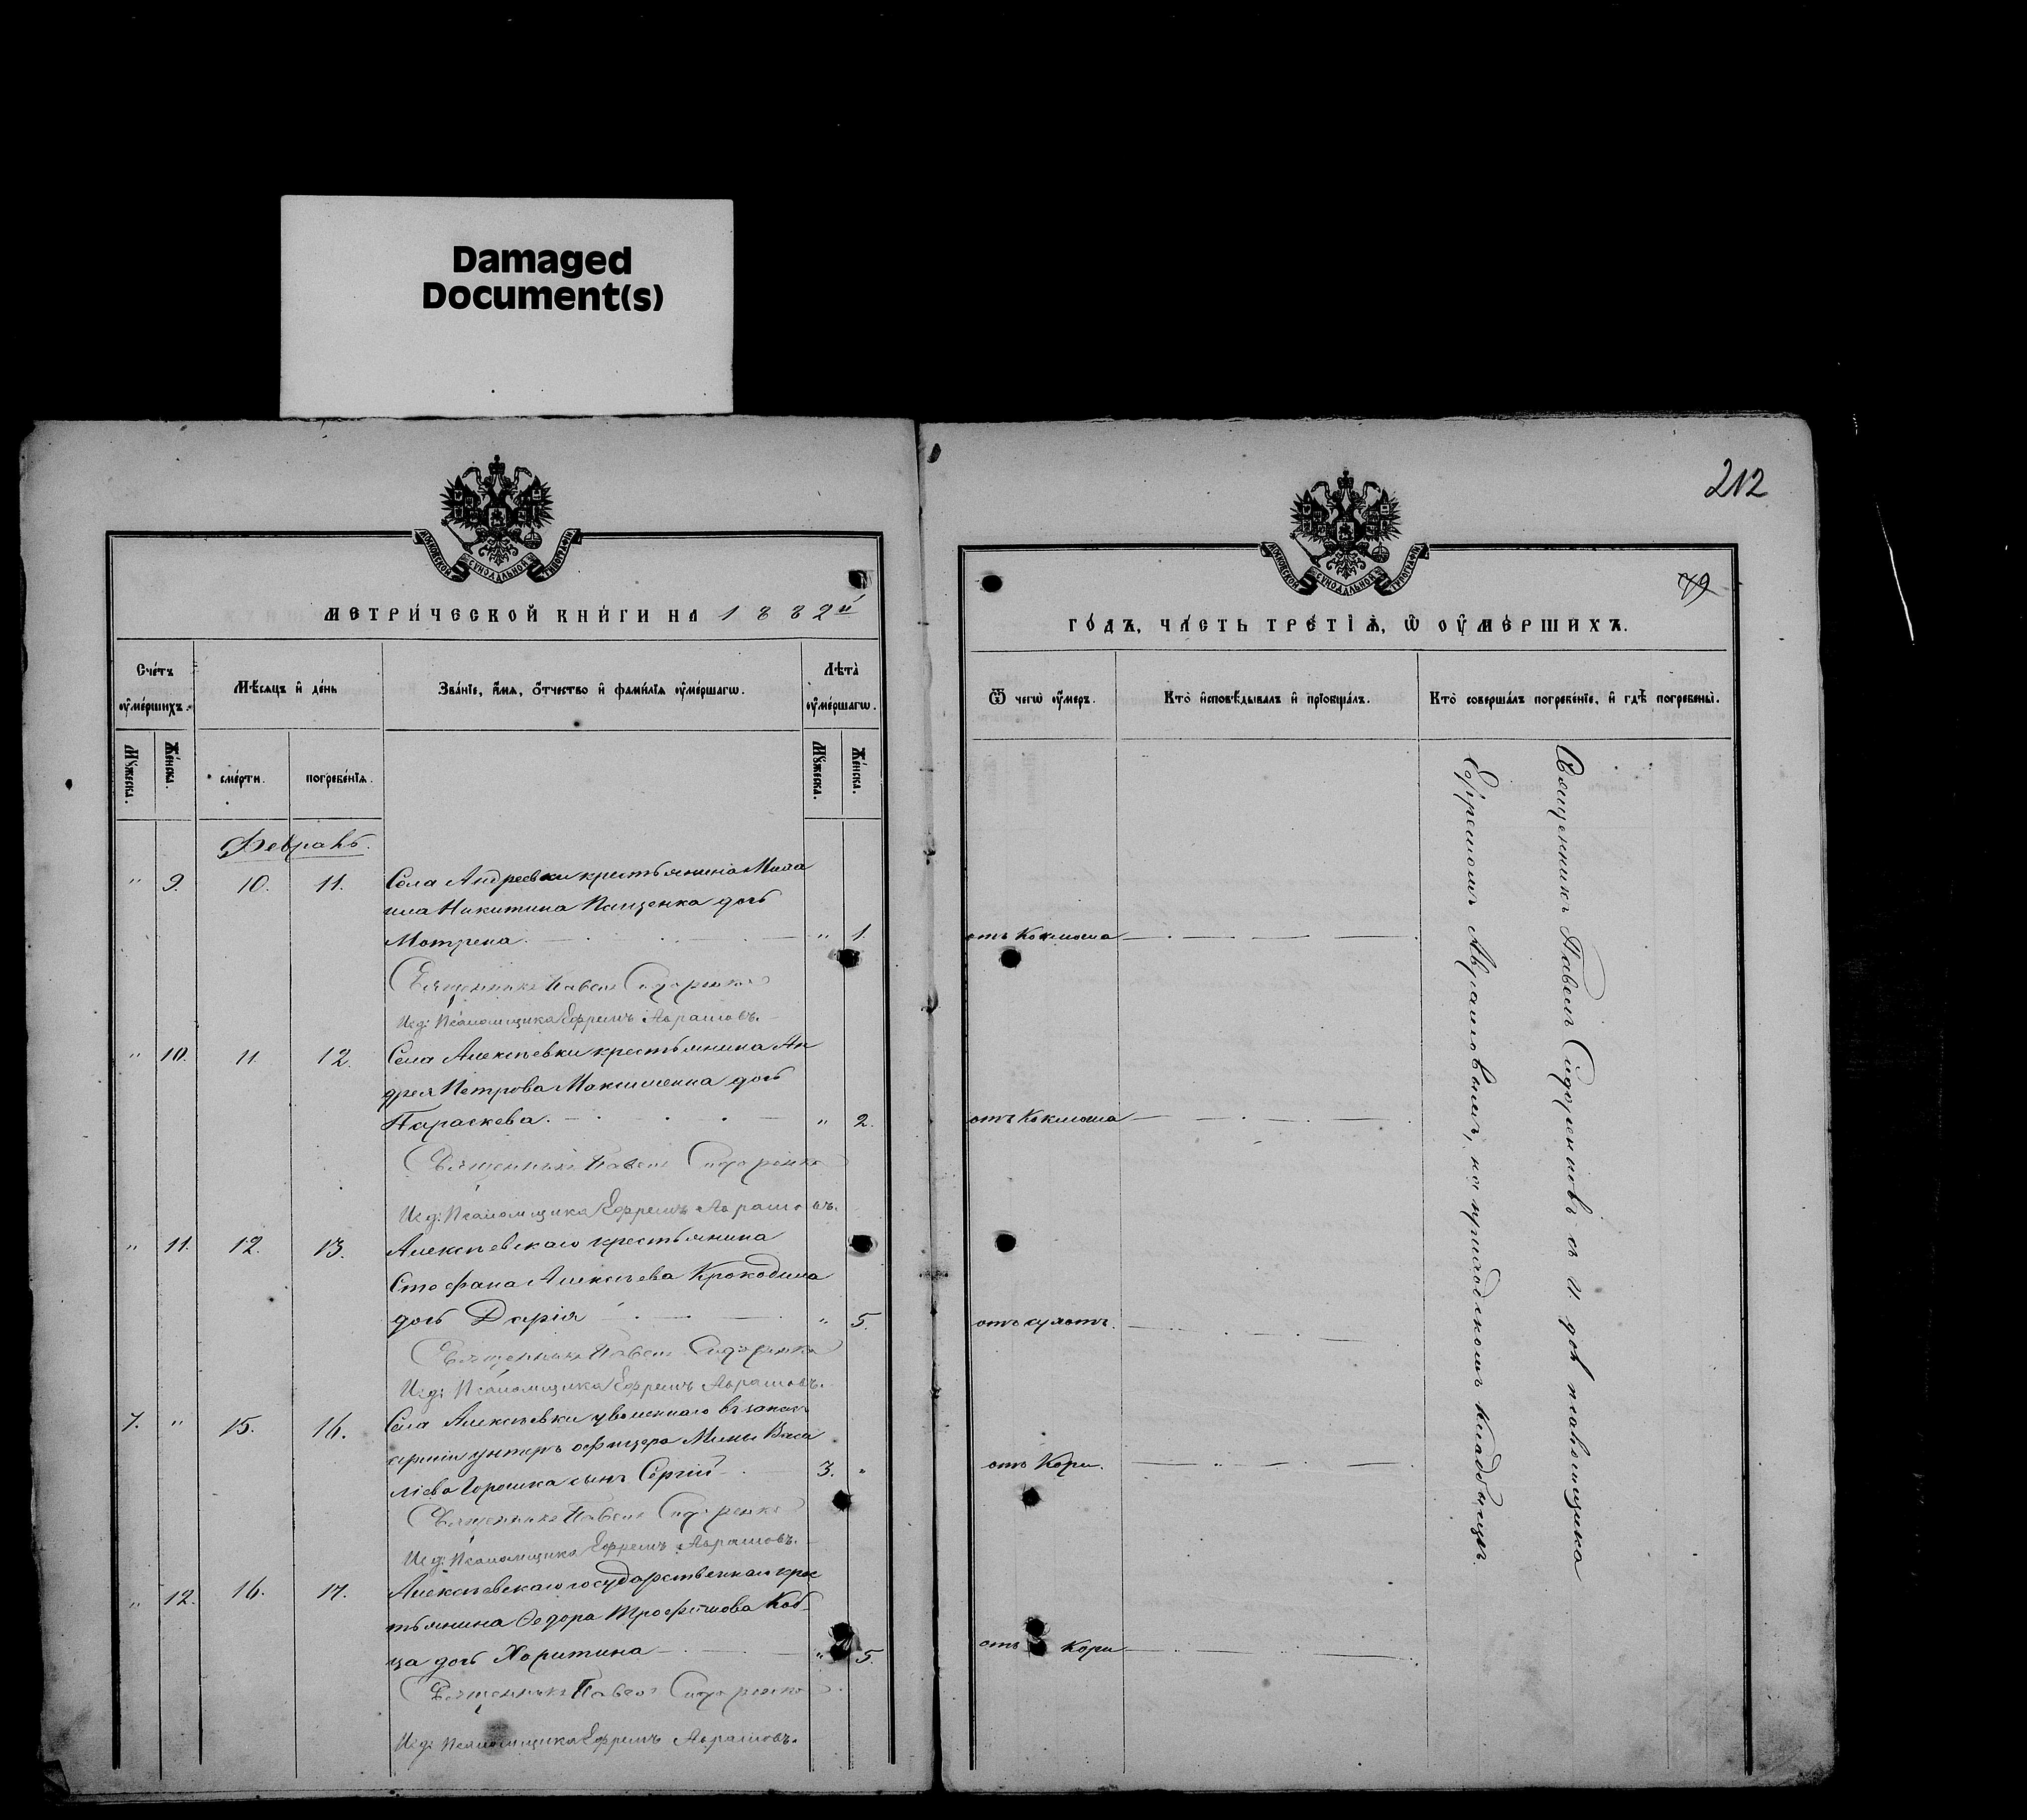 Damaged
Document(s)
МОСКОВСКОЙ СѴНОДАЛЬНОЙ ТИПОГРАФІИ
МЕТРИ́ЧЕСКОЙ КНИ́ГИ НА 1882й
Сче́тъ
ᲂу҆ме́ршихъ.
Мѣ́сяцъ и҆ де́нь
Зва́нїе, и҆́мя, ѻ҆́тчество и҆ фамѝлїя ᲂу҆ме́ршагѡ.
Лѣ́та
ᲂу҆ме́ршагѡ.
Мꙋ́жеска.
Же́нска.
сме́рти.
погребе́нїя.
Мꙋ́жеска.
Же́нска.
Февраль.
" 9. 10. 11. Села Андреевки крестьянина Миха
ила Никитина Пащенка дочь
Мотрена. " 1.
Священникъ Павелъ Сидоренко
И.д: Псаломщика Ефремъ Аврамовъ.
" 10. 11. 12. Села Алексѣевки крестьянина Ан
дрея Петрова Максименка дочь
Параскева. " 2.
Священникъ Павелъ Сидоренко
И.д: Псаломщика Ефремъ Аврамовъ.
" 11. 12. 13. Алексѣевскаго крестьянина
Стефана Алексѣева
дочь Дарія " 5.
Священникъ Павелъ Сидоренко
И.д: Псаломщика Ефремъ Аврамовъ.
7. " 15. 16. Села Алексѣевки уволеннаго въ запасъ
арміи унтеръ офицера Мины Васи
лієва Горошка сынъ Сергій 3. "
Священникъ Павелъ Сидоренко
И.д: Псаломщика Ефремъ Аврамовъ.
" 12. 16. 17. Алексѣевскаго государственнаго крес
тьянина Ѳедора Трофимова Коб
ца дочь Харитина " 5.
Священникъ Павелъ Сидоренко
И.д: Псаломщика Ефремъ Аврамовъ.
212
79
МОСКОВСКОЙ СѴНОДАЛЬНОЙ ТИПОГРАФІИ
ГО́ДЪ, ЧА́СТЬ ТРЕ́ТІѦ, Ѡ҆ ОУ҆МЕ́РШИХЪ.
Ѿ чегѡ̀ ᲂу҆́меръ.
Кто̀ и҆сповѣ́дывалъ и҆ прїѡбща́лъ.
Кто̀ соверша́лъ погребе́нїе, и҆ гдѣ̀ погребены̀.
отъ Коклюша
отъ Коклюша
отъ сухотъ.
отъ Кори.
отъ Кори
Священникъ Павелъ Сидоренковъ съ и. дол псаломщика
Ефремомъ Аврамовымъ, на приходскомъ кладбищѣ.